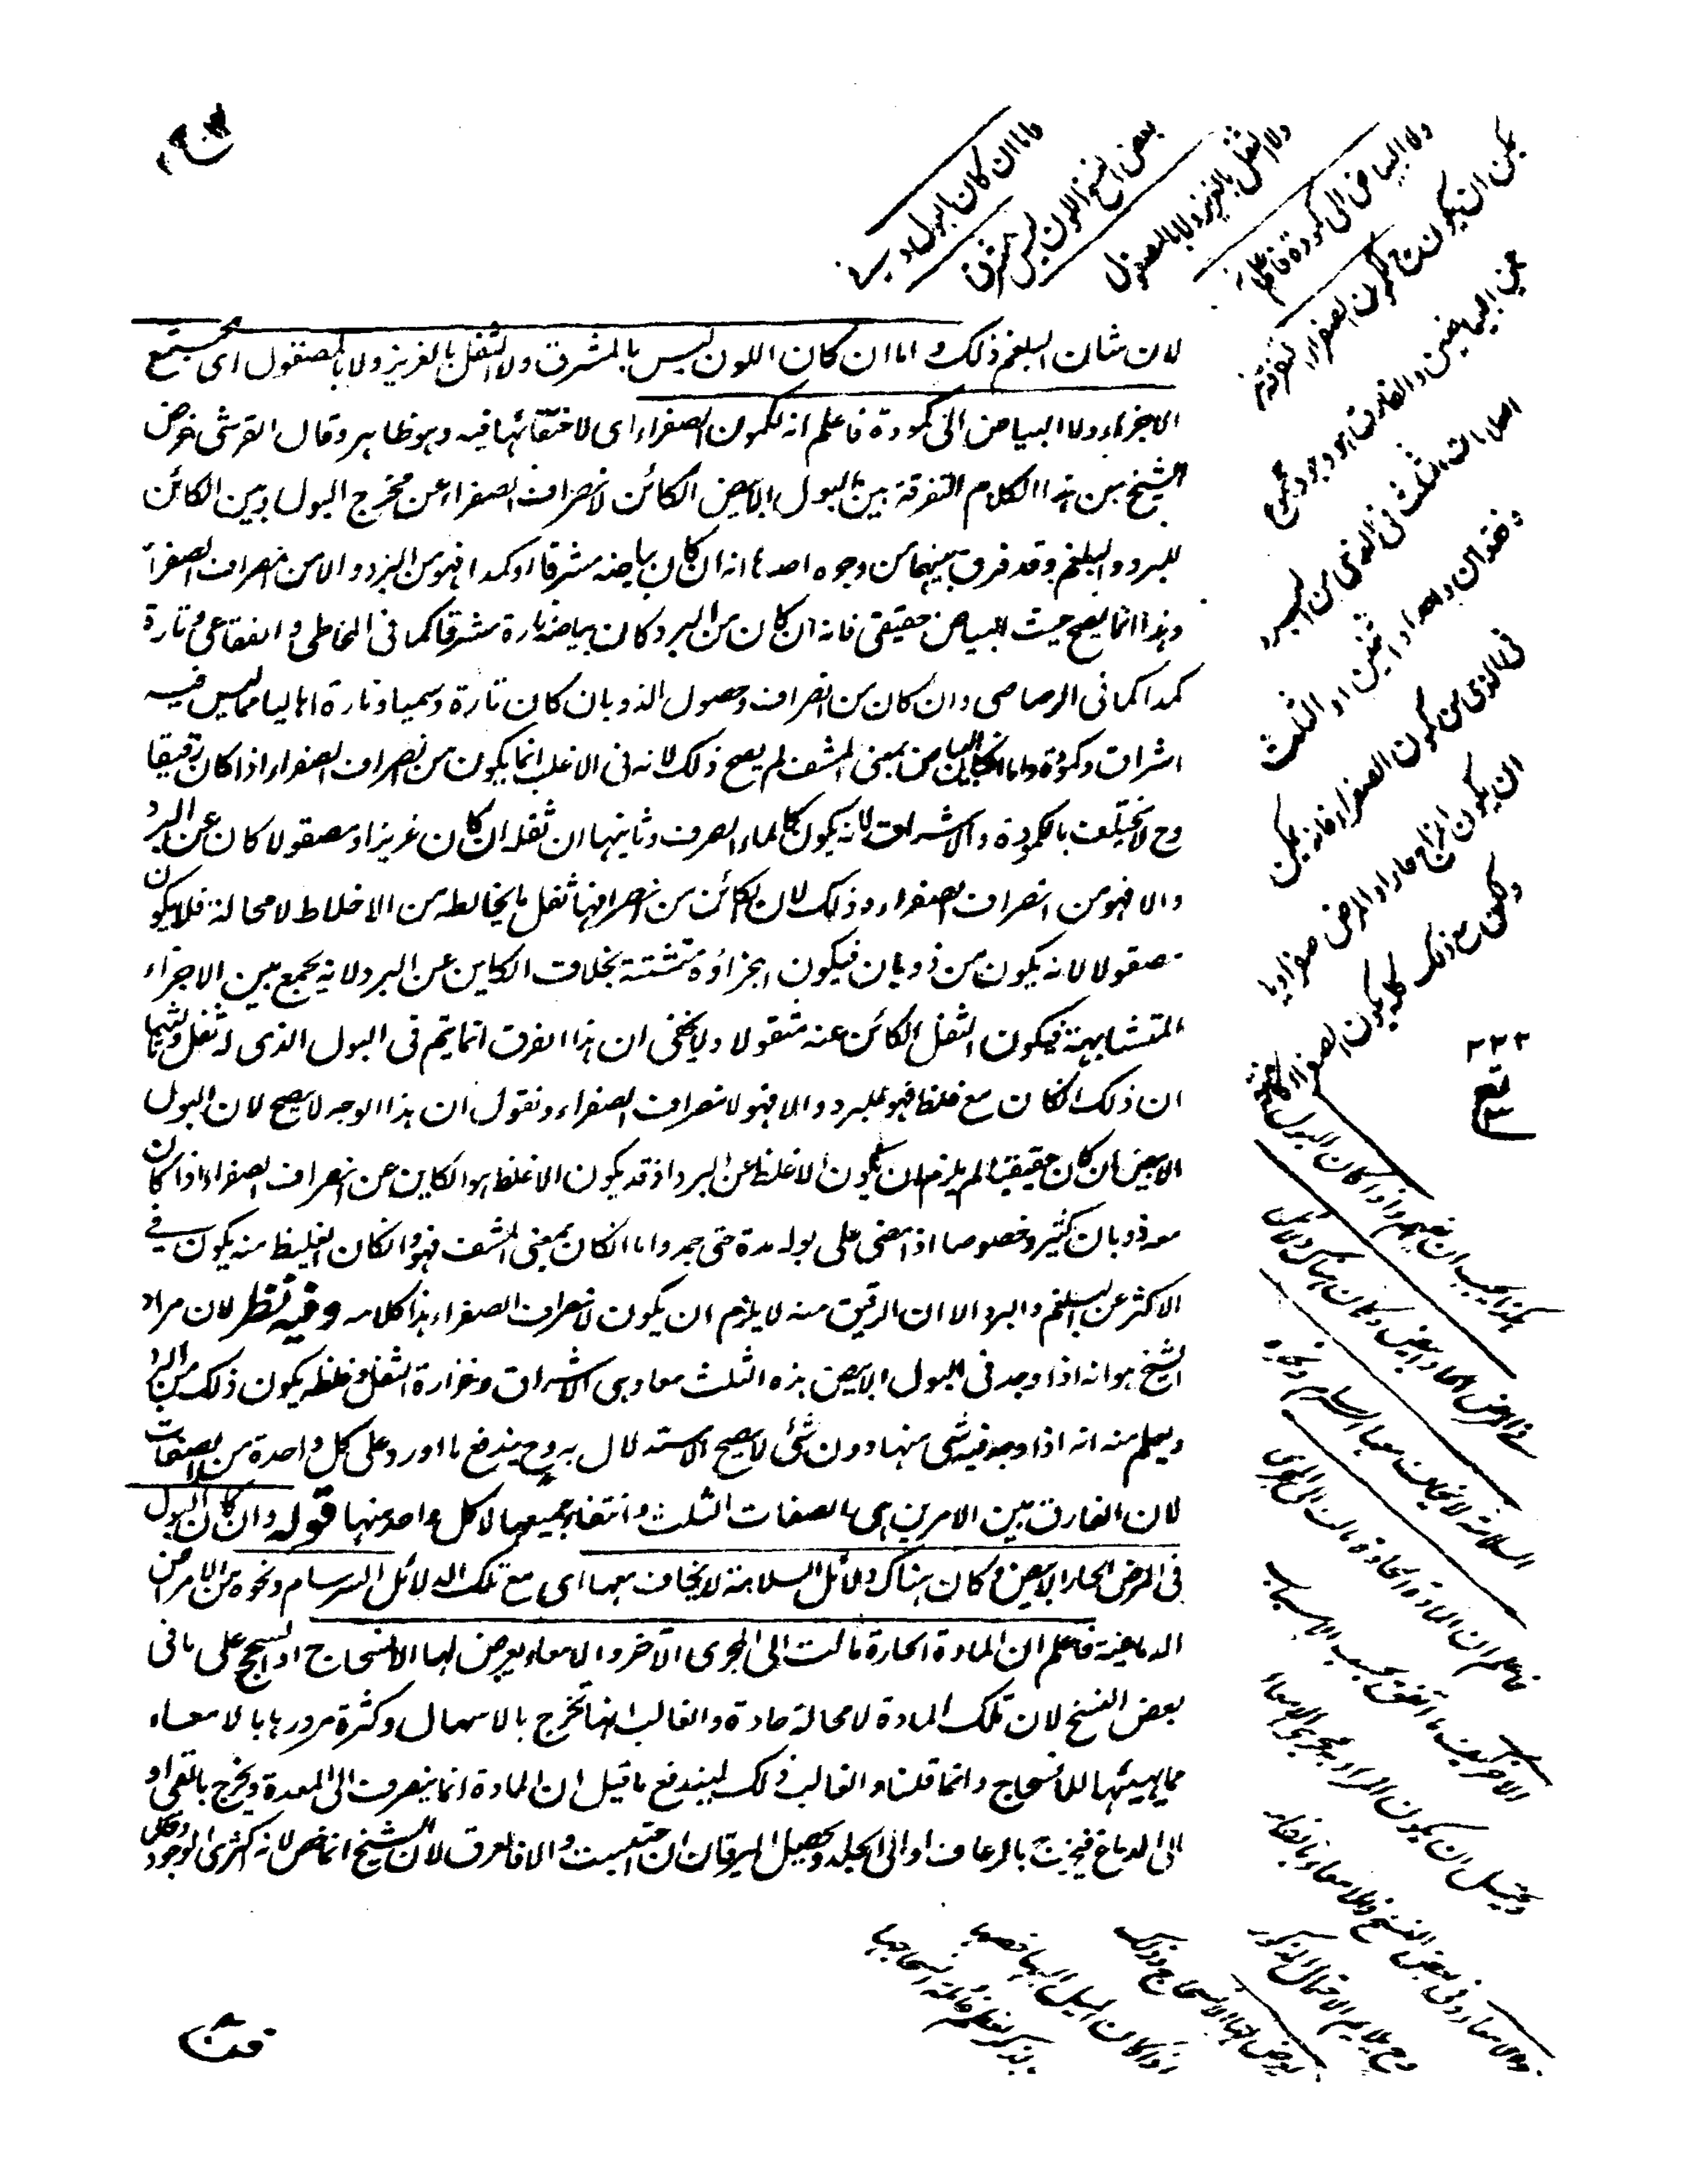 لان شان البلغم ذلك و اما ان كان اللون ليس بالمشرق ولا الثفل بالغزيز ولا بالمصقول اى مجتمع
الاجزاء ولا البياض الى كمودة فاعلم انه لكمون الصفراء اى لاختفائها فيه وهو ظاهر وقال القرشى غرض
الشيخ من هذا الكلام التفرقة بين البول الابيض الكائن لانصراف الصفراء عن مخرج البول وبين الكائن
للبرد والبلغم وقد فرق بينهما من وجوه احدها انه ان كان بياضه مشرقا او كمدا فهو من البرد والا من انصراف الصفراء
وهذا انما يصح حيث البياض حقيقى فانه ان كان من البرد كان بياضه تارة مشرقا كما فى المخاطى والفقاعى وتارة
كمدا كما فى الرصاصى وان كان من انصراف وحصول الذوبان كان تارة دسميا وتارة اهاليا مما ليس فيه
اشراق وكمودة واما ان كان البياض بمعنى المشف لم يصح ذلك لانه فى الاغلب انما يكون من انصراف الصفراء اذا كان رقيقا
وح لا يختلف بالكمودة والاشراق لانه يكون كالماء الصرف وثانيها ان ثفله ان كان غزيزا ومصقولا كان عن البرد
والا فهو من انصراف الصفراء وذلك لان الكائن من انصرافها ثفل ما يخالطه من الاخلاط لا محالة فلا يكون
مصقولا لانه يكون من ذوبان فيكون اجزاؤه متشتتة بخلاف الكاين عن البرد لانه يجمع بين الاجزاء
المتشابهة فيكون الثفل الكائن عنه مثقولا ولا يخفى ان هذا الفرق انما يتم فى البول الذى له ثفل وثالثها
ان ذلك ان كان مع غلظ فهو للبرد والا فهو لانصراف الصفراء ونقول ان هذا الوجه لا يصح لان البول
الابيض ان كان حقيقيا لم يلزم ان يكون الاغلظ عن البرد اذ قد يكون الاغلظ هو الكاين عن انصراف الصفراء اذا كان
معه ذوبان كثير وخصوصا اذا مضى على بوله مدة حتى جمد واما ان كان بمعنى المشف فهو وان كان الغليظ منه يكون فى
الاكثر عن البلغم والبرد الا ان الرقيق منه لا يلزم ان يكون لانصراف الصفراء هذا كلامه وفيه نظر لان مراد
الشيخ هو انه اذا وجد فى البول الابيض هذه الثلث معا وهى الاشراق وغزارة الثفل وغلظه يكون ذلك من البرد
ويعلم منه انه اذا وجد فيه شى منها دون شئ لا يصح الاستدلال به وح يندفع ما اورد على كل واحدة من الصفات
لان الفارق بين الامرين هى الصفات الثلث وانتفاء جميعها لا كل واحد منها قوله وان كان البول
فى المرض الحار الابيض وكان هناك دلائل السلامة لا يخاف معها اى مع تلك الدلائل السرسام ونحوه من الامراض
الدماغية فاعلم ان المادة الحارة مالت الى المجرى الآخر والامعاء يعرض لها الانسحاج او السحج على ما فى
بعض النسخ لان تلك المادة لا محالة حادة والغالب انها تخرج بالاسهال وكثرة مرورها بالامعاء
مما يهيئها للانسحاج وانما قلنا والغالب ذلك ليندفع ما قيل ان المادة انما ينصرف الى المعدة ويخرج بالقى او
الى الدماغ فيخرج بالرعاف او الى الجلد ويحصل اليرقان ان احتبست والا فالعرق لان الشيخ انما خص لانه اكثرى الوجود
واما ان كان البول
بعض النسخ اللون ليس بمشرق
ولا الثفل بالغزيز ولا بالمصقول
ولا البياض الى كمودة فاعلم انه
يمكن ان يكون لكمون الصفراء
بين البياضين والفارق هو وجود جميع
الثلث فى الذى من البرد
وفقدان واحد او اثنين او الثلث
فى الذى من كمون الصفراء فانه يمكن
ان يكون المزاج حارا والمرض صفراويا
٢٢٣
السلامة لا يخاف معها السرسام ونحوه
فاعلم ان المادة الحادة مالت الى المجرى
ويحتمل ان يكون المراد بمجرى الامعاء